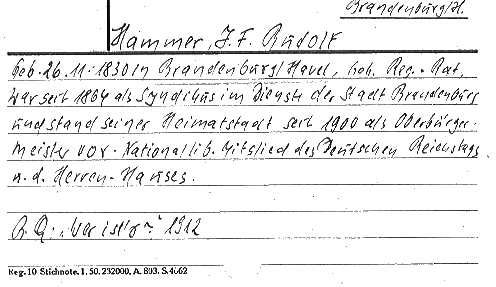 Brandenburg/H.
Hammer, J. F. Rudolf
Geb. 26.11.1830 in Brandenburg/Havel, Geh. Reg.-Rat,
war seit 1864 als Syndikus im Dienste der Stadt Brandenburg
und stand seiner Heimatstadt seit 1900 als Oberbürger-
meister vor. Nationallib. Mitglied des Deutschen Reichstags
u. d. Herren-Hauses.
"Wer ist's" 1912
Reg. 10 Stichnote. 1. 50. 232000. A. 803. S. 4662